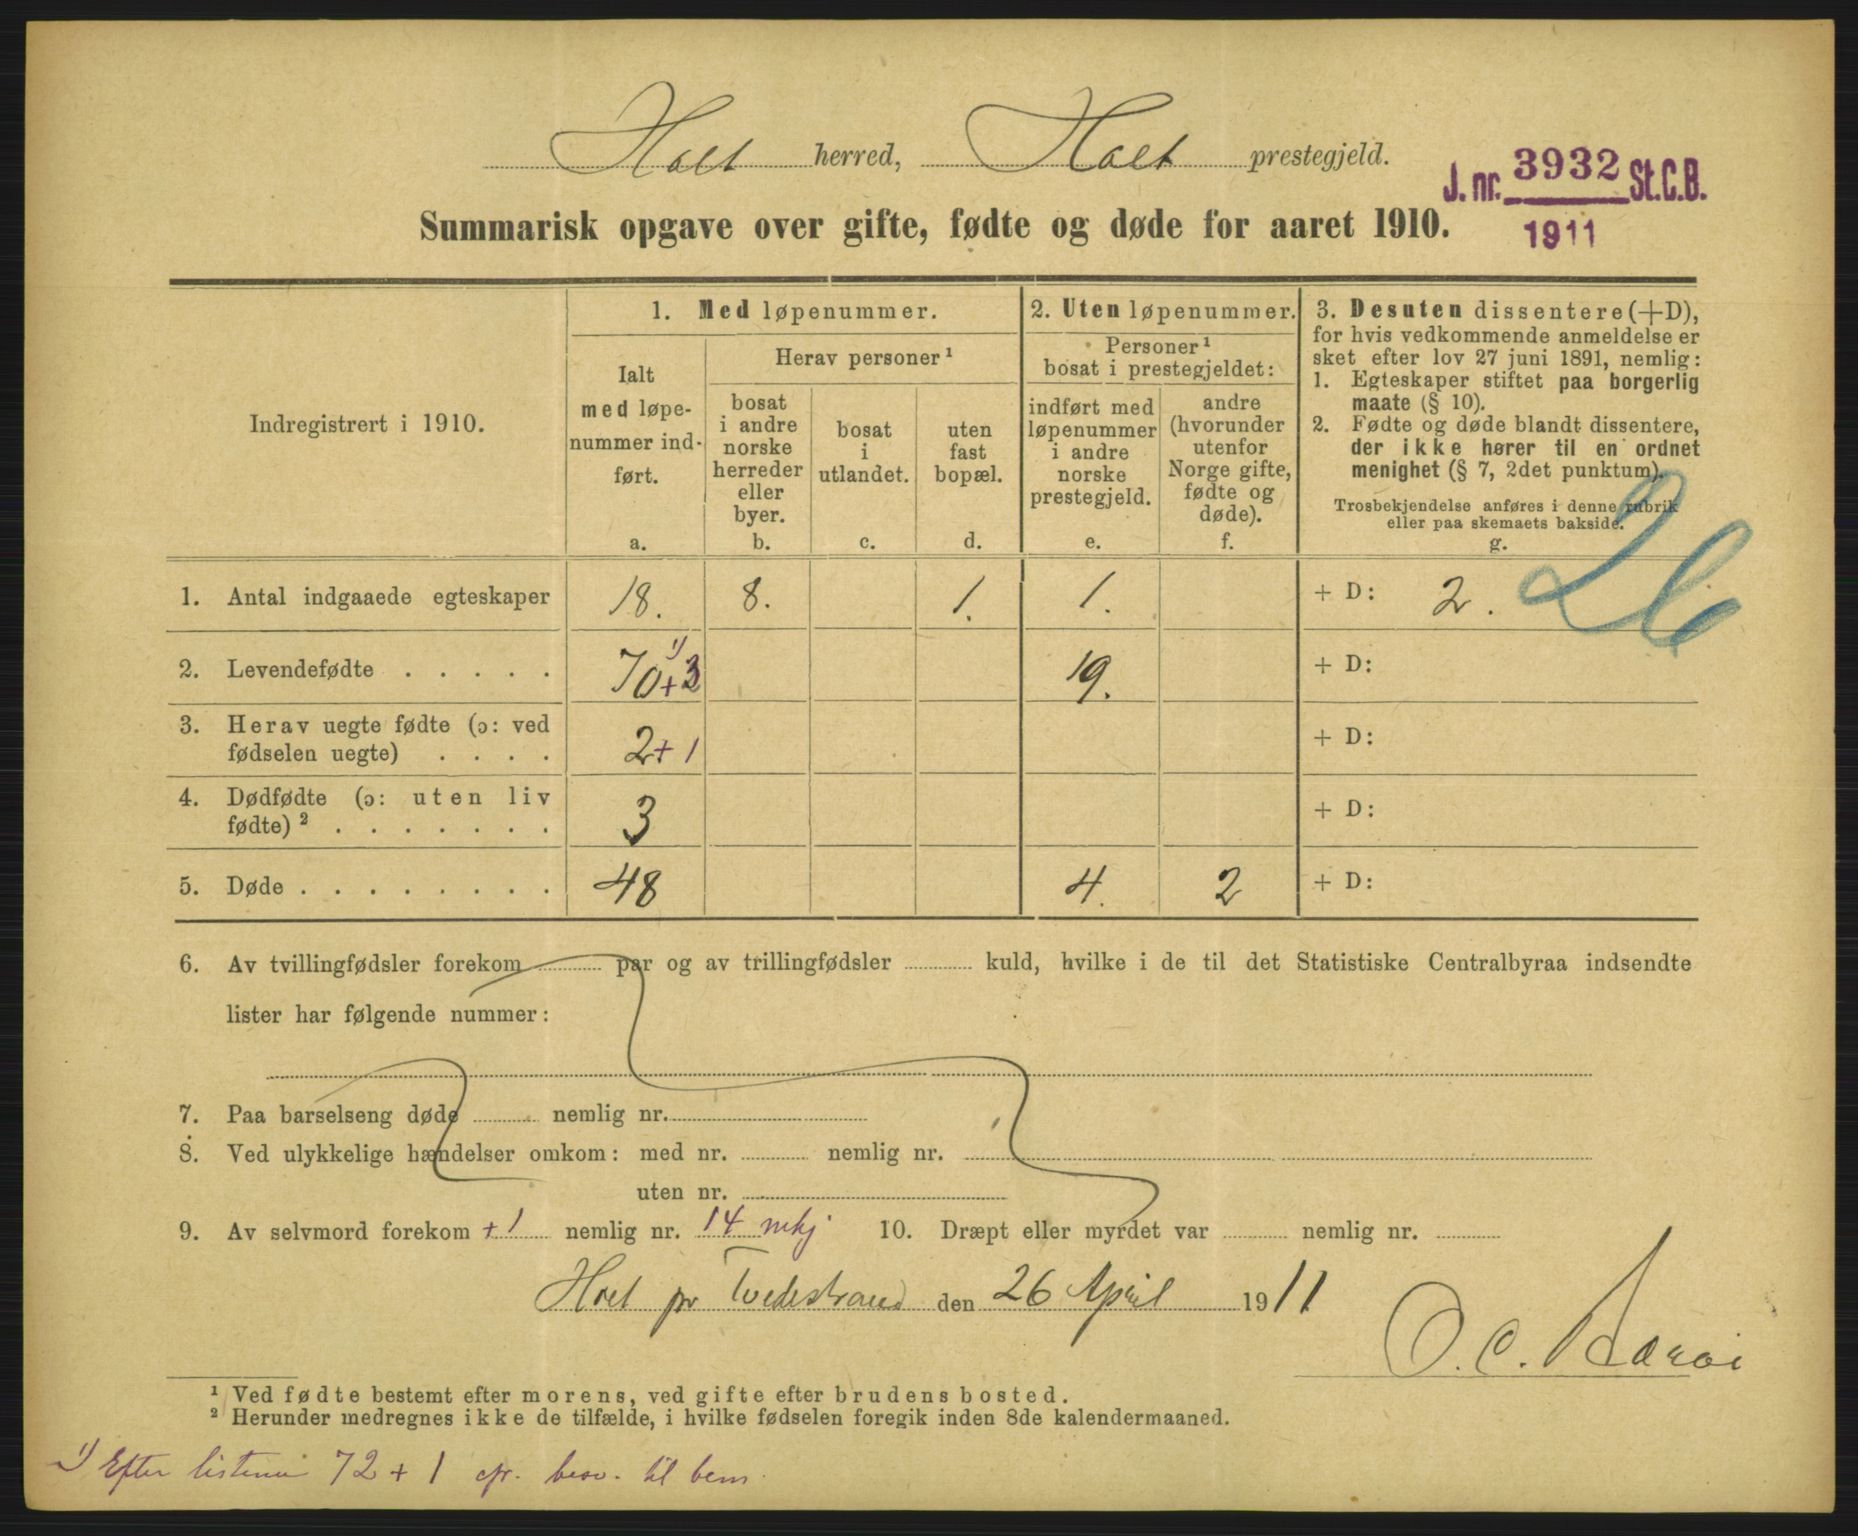 Holt herred, Holt prestegjeld.
J. nr. 3932 St.C.B.
1911
Summarisk opgave over gifte, fødte og døde for aaret 1910.
Indregistrert i 1910.
1. Med løpenummer.
Ialt
med løpe-
nummer ind-
ført.
a.
Herav personer ¹
bosat
i andre
norske
herreder
eller
byer.
b.
bosat
i
utlandet.
c.
uten
fast
bopæl.
d.
2. Uten løpenummer.
Personer ¹
bosat i prestegjeldet:
indført med
løpenummer
i andre
norske
prestegjeld.
e.
andre
(hvorunder
utenfor
Norge gifte,
fødte og
døde).
f.
3. Desuten dissentere (+D),
for hvis vedkommende anmeldelse er
sket efter lov 27 juni 1891, nemlig:
1. Egteskaper stiftet paa borgerlig
maate (§ 10).
2. Fødte og døde blandt dissentere,
der ikke hører til en ordnet
menighet (§ 7, 2det punktum).
Trosbekjendelse anføres i denne rubrik
eller paa skemaets bakside.
g.
26
1. Antal indgaaede egteskaper 18. 8. 1. 1. + D: 2.
2. Levendefødte . . . . . 70 ¹⁾ + 3 19. + D:
3. Herav uegte fødte (ɔ: ved
fødselen uegte) . . . . 2 + 1 + D:
4. Dødfødte (ɔ: uten liv
fødte) ² . . . . . . . 3 + D:
5. Døde . . . . . . . . 48 4. 2 + D:
6. Av tvillingfødsler forekom ........ par og av trillingfødsler ........ kuld, hvilke i de til det Statistiske Centralbyraa indsendte
lister har følgende nummer:
7. Paa barselseng døde ........ nemlig nr. ........
8. Ved ulykkelige hændelser omkom: med nr. ........ nemlig nr. ........
uten nr. ........
9. Av selvmord forekom +1 nemlig nr. 14 mkj 10. Dræpt eller myrdet var ........ nemlig nr. ........
Holt pr Tvedestrand den 26 April 1911.
O. C.
¹ Ved fødte bestemt efter morens, ved gifte efter brudens bosted.
² Herunder medregnes ikke de tilfælde, i hvilke fødselen foregik inden 8de kalendermaaned.
¹⁾ Efter listerne 72 + 1 cfr. besv. til bem.